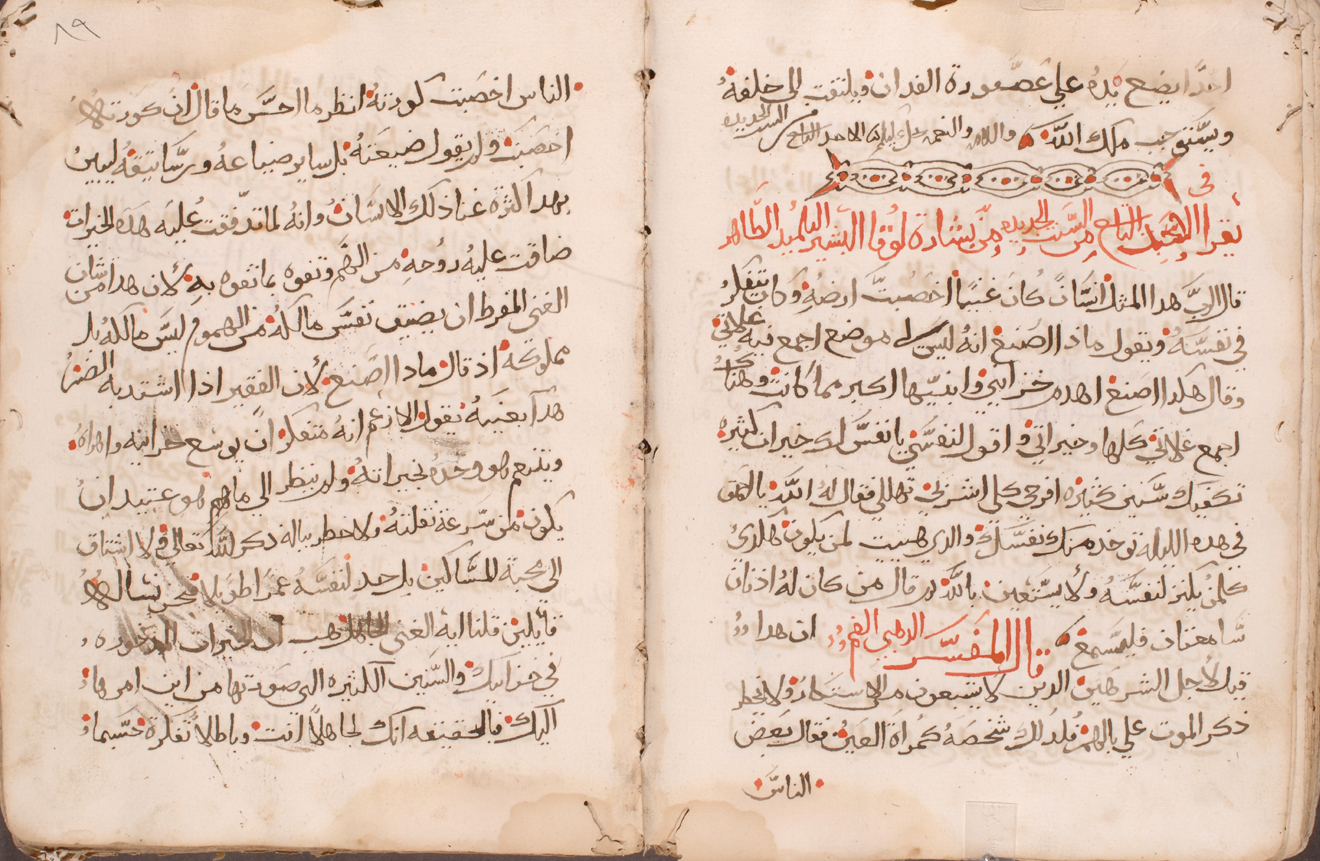 احدًا يضع يده علي عصفورة الفدان ويلتفت الى خلفه
ويستحق ملك الله والنعمه الاحد التاسع من السبت الجديده
في
يقرا الانجيل التاسع من السبت الجديده من بشارة لوقا البشير التلميد الطاهر
قال الرب هدا المثل انسان كان غنيًا اخصبت ارضه وكان يتفكر
في نفسه ويقول ماذا اصنع انه ليس لي موضع اجمع فيه غلاتي
وقال هكدا اصنع اهدم خزايني وابنيها اكبر مما كانت وهناك
اجمع غلاتي كلها وخيراتي واقول لنفسي يا نفس لك خيرات كثيره
تكفيك سنين كثيره افرحي كلي اشربي تهللي فقال له الله يا احمق
في هده الليلة توخد منك نفسك والدي هييت لمن يكون هكدى
كلمن يكنز لنفسه ولا يستغين بالله ثم قال من كان له ادنان
سامعتان فليسمع قال المفسر الدهبي الفم ان هدا
قيل لاجل الشرهين الدين لا يشبعون من الاستكثار ولا يخطر
ذكر الموت علي بالهم فلدلك شخصه كمراة العين فقال بعض
الناس
٨٩
الناس اخصبت كورته انظر ما احسن ما قال ان كورته
اخصبت ولم يقول ضيعته بل ساير ضياعه ورساتيقه ليبين
بهدا كثرة غنا ذلك الانسان وانه لما تدفقت عليه هده الخيرات
ضاقت عليه روحه من الهم وتفوه بما تفوه به لان هدا من شان
الغني المفرط ان يضيق نفس مالكه من الهموم ليس مالكه بل
مملوكه اذ قال مادا اصنع لان الفقير اذا اشتد به الضر
هدا بعينه يقول الا زعم انه متفكر ان يوسع خزاينه واهراه
ويتنعم هو وحده بخيراته ولم ينظر الى ما هو عتيد ان
يكون من سرعة نقلته ولا خطر بباله ذكر الله تعالى ولا اشتاق
الى محبة المساكين بل حدد لنفسه عمرًا طويلا فنحن نساله
قايلين قلنا ايه الغني الجاهل هب ان الخيرات المدخوره
في خزاينك والسنين الكثيره التي صورتها من اين امرها
اليك فالحقيقه انك لجاهلا انت وباطلا تفكرة حسبما